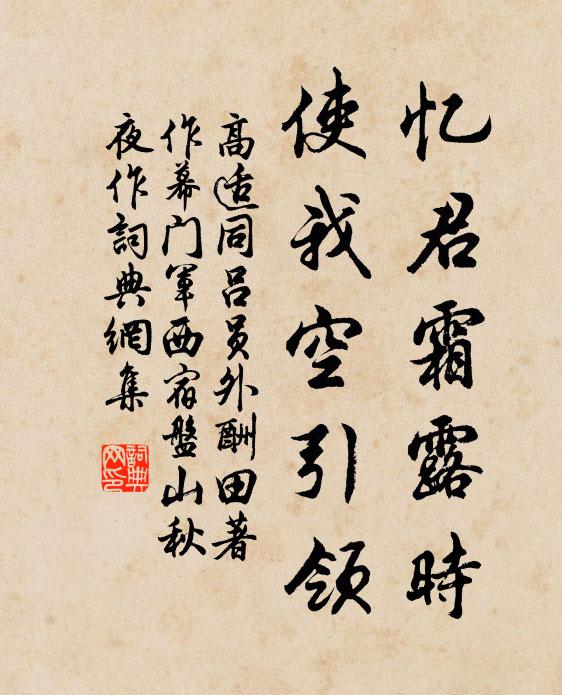 忆君霜露時
使我空引领
高适同吕员外酬田著
作幕门军西宿盤山秋
夜作詞典網集
詞典
网印